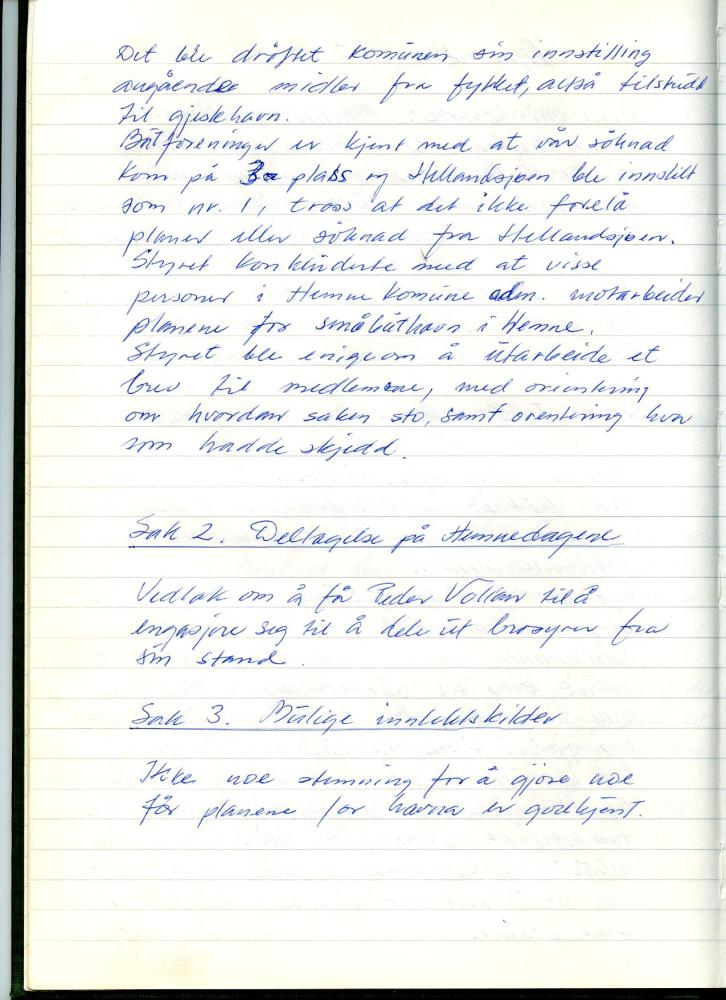 Det ble dröftet komunen sin innstilling
angående midler fra fylket, altså tilskudd
til gjestehavn.
Båtforeninger er kjent med at vår söknad
kom på 3 plass og Hellandsjøen ble innstilt
som nr. 1, tross at det ikke forelå
planer eller söknad fra Hellandsjøen.
Styret konkluderte med at visse
personer i Hemne Komune adm. motarbeider
planene for småbåthavn i Hemne.
Styret ble enige om å utarbeide et
brev til medlemene, med orientering
om hvordan saken sto, samt orentering hva
som hadde skjedd.
Sak 2. Deltagelse på Hemnedagene
Vedtak om å få Peder til å
engasjere seg til å dele ut brosyrer fra
sin stand.
Sak 3. Mulige inntektskilder
Ikke noe stemning for å gjøre noe
før planene for havna er godkjent.